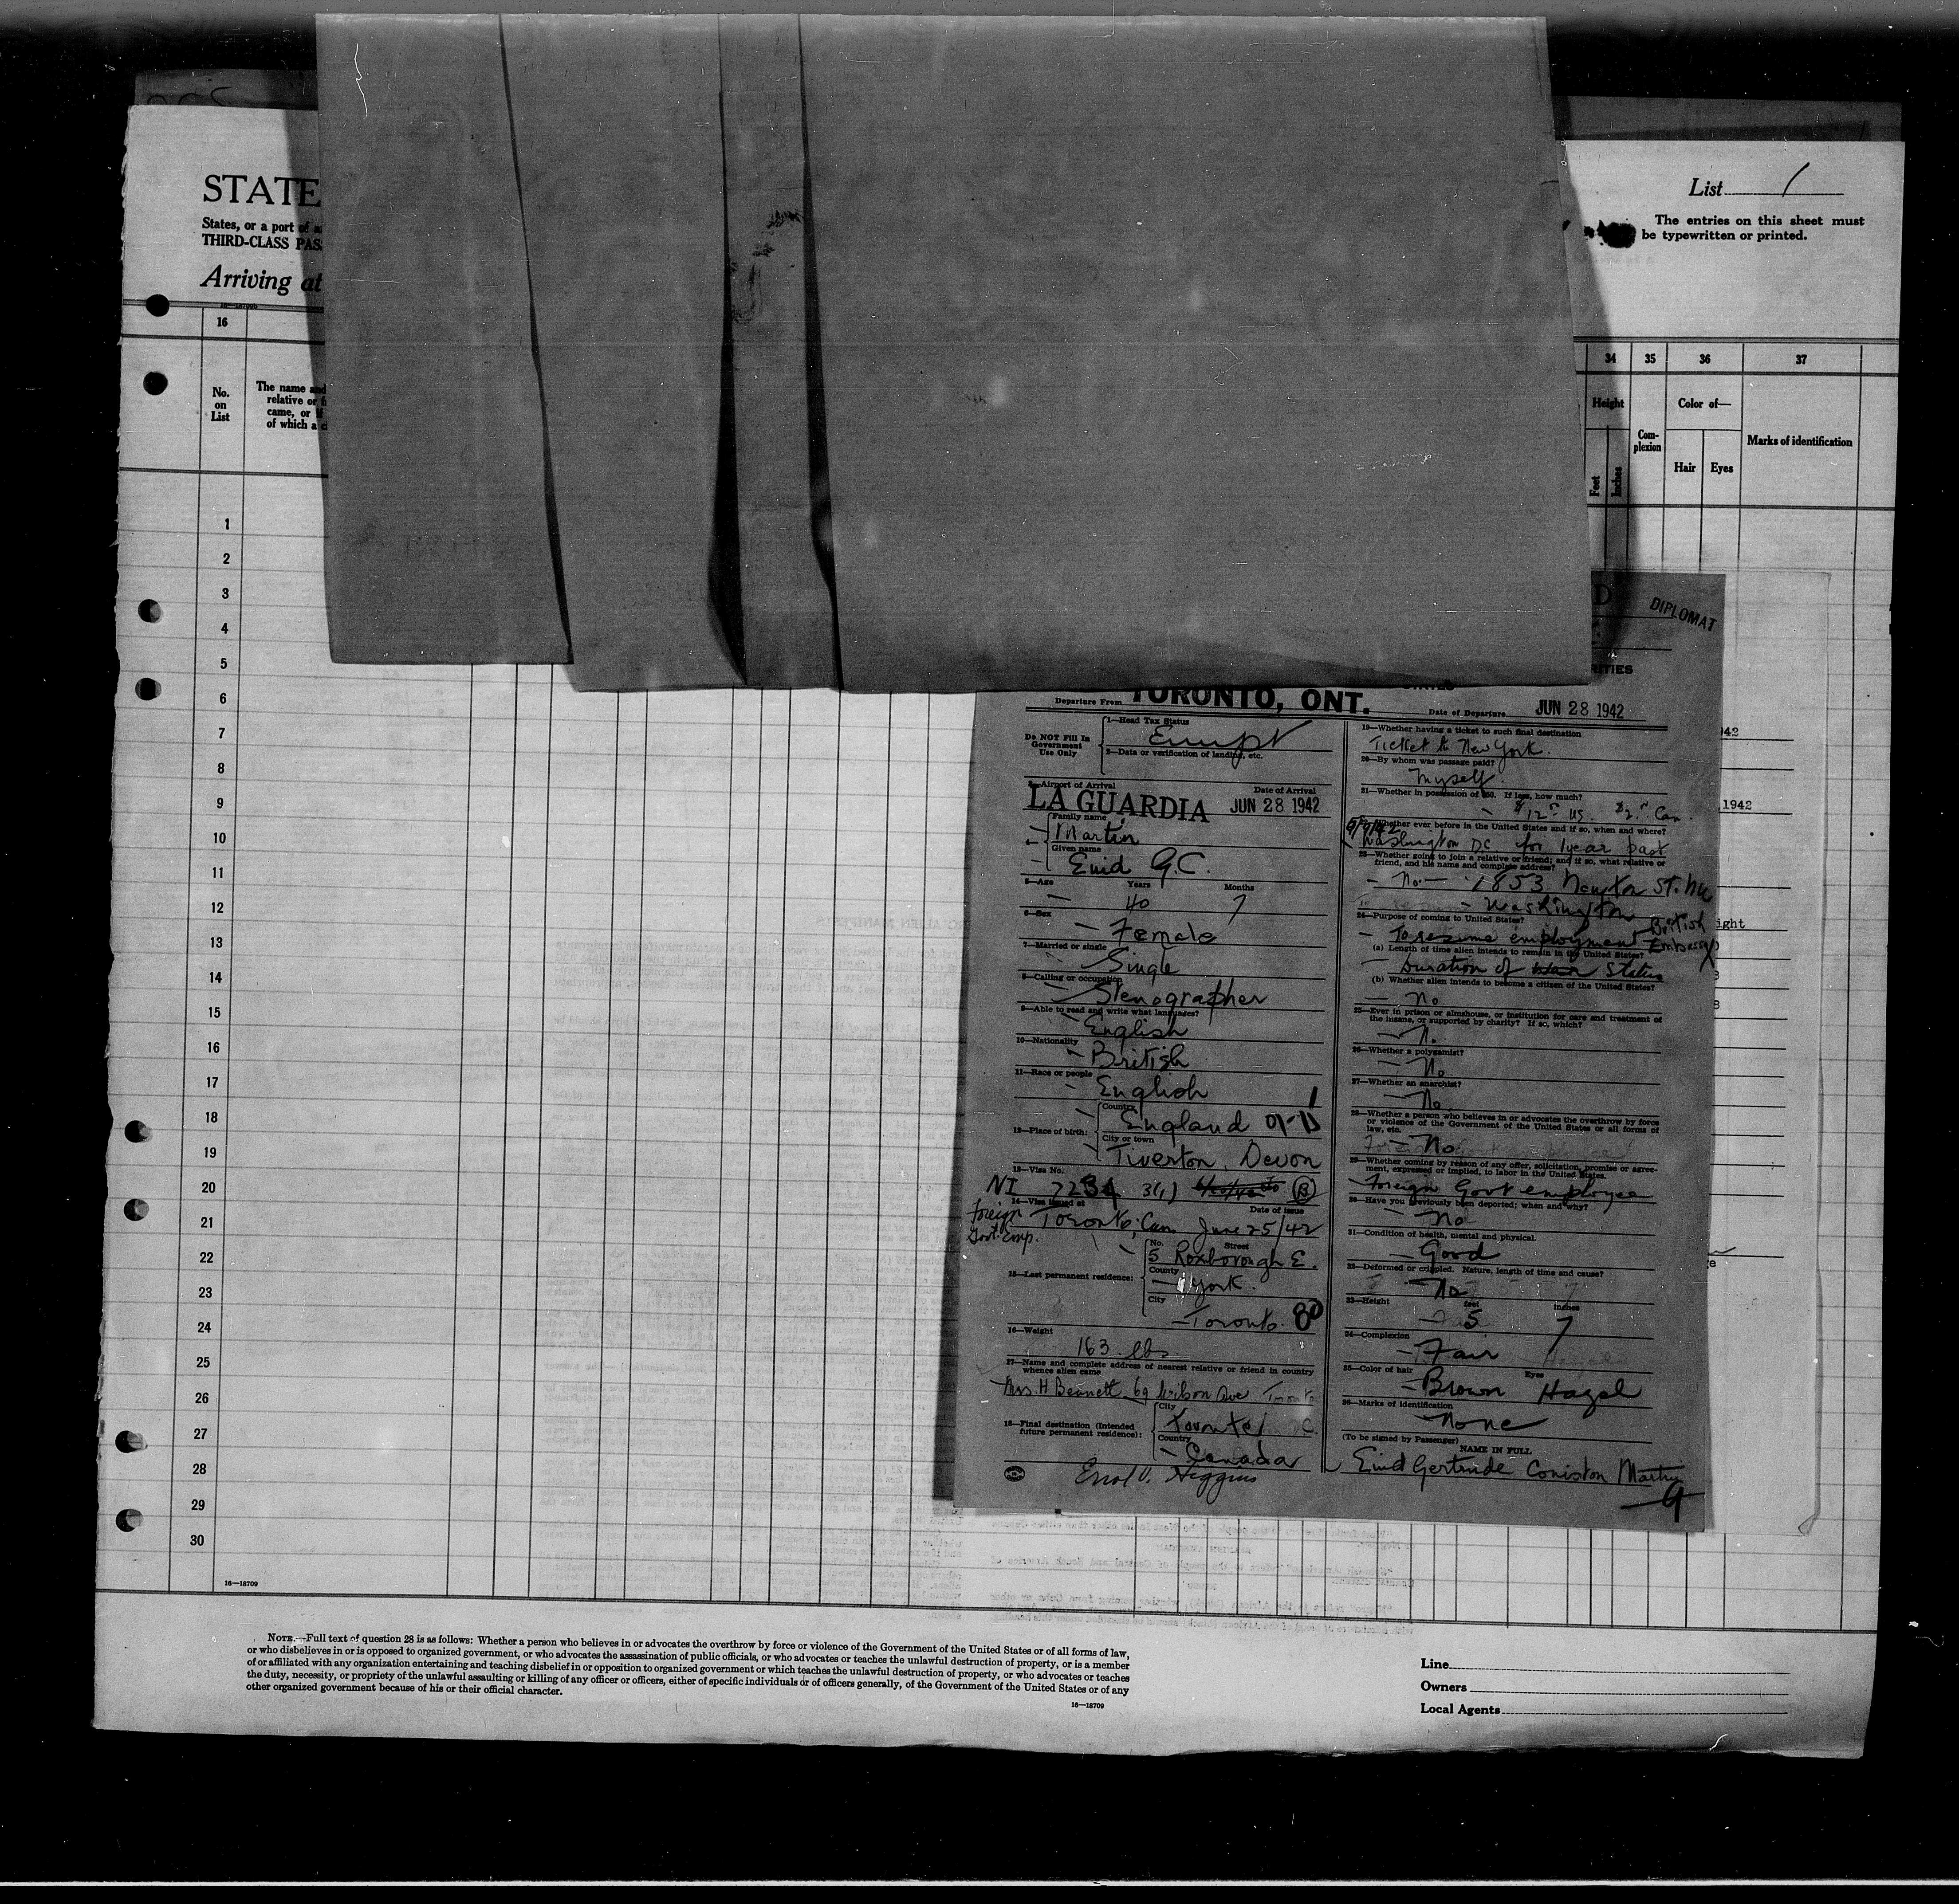 STATE
States, or a port of
THIRD-CLASS PAS
Arriving at
List 1
The entries on this sheet must
be typewritten or printed.
16
34
35
36
37
No.
on
List
The name and
relative or
came, or if
of which a
Height
Feet
Inches
Com-
plexion
Color of—
Hair
Eyes
Marks of identification
1
2
3
4
5
6
7
8
9
10
11
12
13
14
15
16
17
18
19
20
21
22
23
24
25
26
27
28
29
30
16—18709
DIPLOMAT
Departure From TORONTO, ONT.
Date of Departure JUN 28 1942
Do NOT Fill In
Government
Use Only
1—Head Tax Status
Exmpt
2—Data or verification of landing, etc.
3—Airport of Arrival
Date of Arrival
LA GUARDIA JUN 28 1942
4—
Family name
Martin
Given name
Enid G.C.
5—Age Years Months
40 7
6—Sex
Female
7—Married or single
Single
8—Calling or occupation
Stenographer
9—Able to read and write what languages?
English
10—Nationality
British
11—Race or people
English
12—Place of birth:
Country
England
City or town
Tiverton, Devon
13—Visa No.
NI 7234 3(1)
14—Visa issued at Date of issue
Foreign
Govt. Emp.
Toronto, Can June 25/42
15—Last permanent residence:
No. Street
5 Roxborough E.
County
York.
City
Toronto. 80
16—Weight
163 lbs
17—Name and complete address of nearest relative or friend in country
whence alien came
Mrs H Bennett 69 Wilson Ave Toronto
18—Final destination (Intended
future permanent residence):
City
Toronto
Country
Canada
Errol V. Higgins
19—Whether having a ticket to such final destination
Ticket to New York.
20—By whom was passage paid?
Myself.
21—Whether in possession of $50. If less, how much?
$12 US. $2 Can.
22—Whether ever before in the United States and if so, when and where?
Washington DC for 1 year past
23—Whether going to join a relative or friend; and if so, what relative or
friend, and his name and complete address?
No — 1853 Newton St. NW
Washington
24—Purpose of coming to United States?
To resume employment British
Embassy
(a) Length of time alien intends to remain in the United States?
Duration of war status
(b) Whether alien intends to become a citizen of the United States?
No
25—Ever in prison or almshouse, or institution for care and treatment of
the insane, or supported by charity? If so, which?
No
26—Whether a polygamist?
No
27—Whether an anarchist?
No
28—Whether a person who believes in or advocates the overthrow by force
or violence of the Government of the United States or all forms of
law, etc.
No
29—Whether coming by reason of any offer, solicitation, promise or agree-
ment, expressed or implied, to labor in the United States.
Foreign Govt employee
30—Have you previously been deported; when and why?
No
31—Condition of health, mental and physical.
Good
32—Deformed or crippled. Nature, length of time and cause?
No
33—Height feet inches
5 7
34—Complexion
Fair
35—Color of hair Eyes
Brown Hazel
36—Marks of identification
None
(To be signed by Passenger)
NAME IN FULL
Enid Gertrude Coniston Martin
NOTE.—Full text of question 28 is as follows: Whether a person who believes in or advocates the overthrow by force or violence of the Government of the United States or of all forms of law,
or who disbelieves in or is opposed to organized government, or who advocates the assassination of public officials, or who advocates or teaches the unlawful destruction of property, or is a member
of or affiliated with any organization entertaining and teaching disbelief in or opposition to organized government or which teaches the unlawful destruction of property, or who advocates or teaches
the duty, necessity, or propriety of the unlawful assaulting or killing of any officer or officers, either of specific individuals or of officers generally, of the Government of the United States or of any
other organized government because of his or their official character.
16—18709
Line
Owners
Local Agents